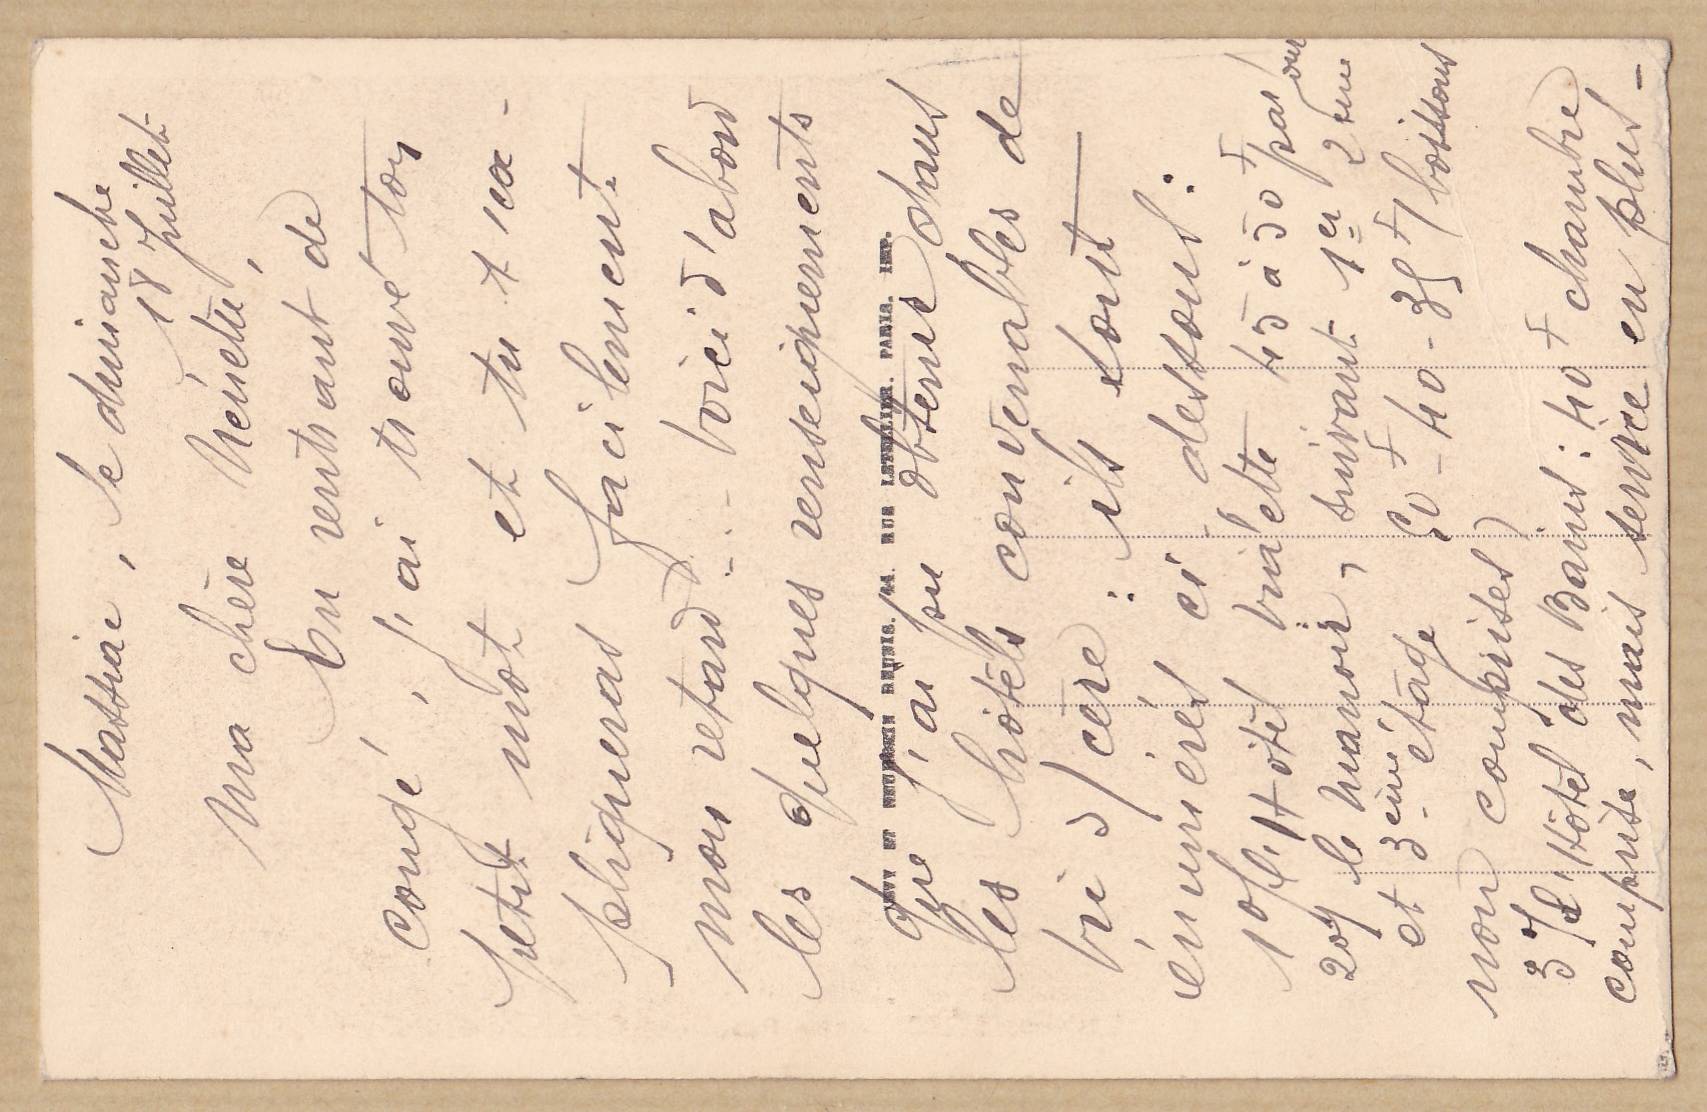 Massiac, le dimanche
18 Juillet
Ma chère Nénette,
En rentrant de
congé, j'ai trouvé ton
petit mot et tu t'ex-
pliqueras facilement
mon retard... Voici d'abord
les quelques renseignements
que j'ai pu obtenir dans
les hôtels convenables de
Vic s/ Cère : ils sont
énumérés ci-dessous :
1o/ l'Hôtel Vialette 45 à 50 F par jour
2o/ le Manoir, suivant 1er 2ème
et 3ème étage 50 F - 40 - 35 F / boissons
non comprises)
3o/ l'Hôtel des Bains : 40 F chambre
comprise, mais service en plus -
LEVY ET NEURDEIN REUNIS. 44. RUE LETELLIER. PARIS. IMP.